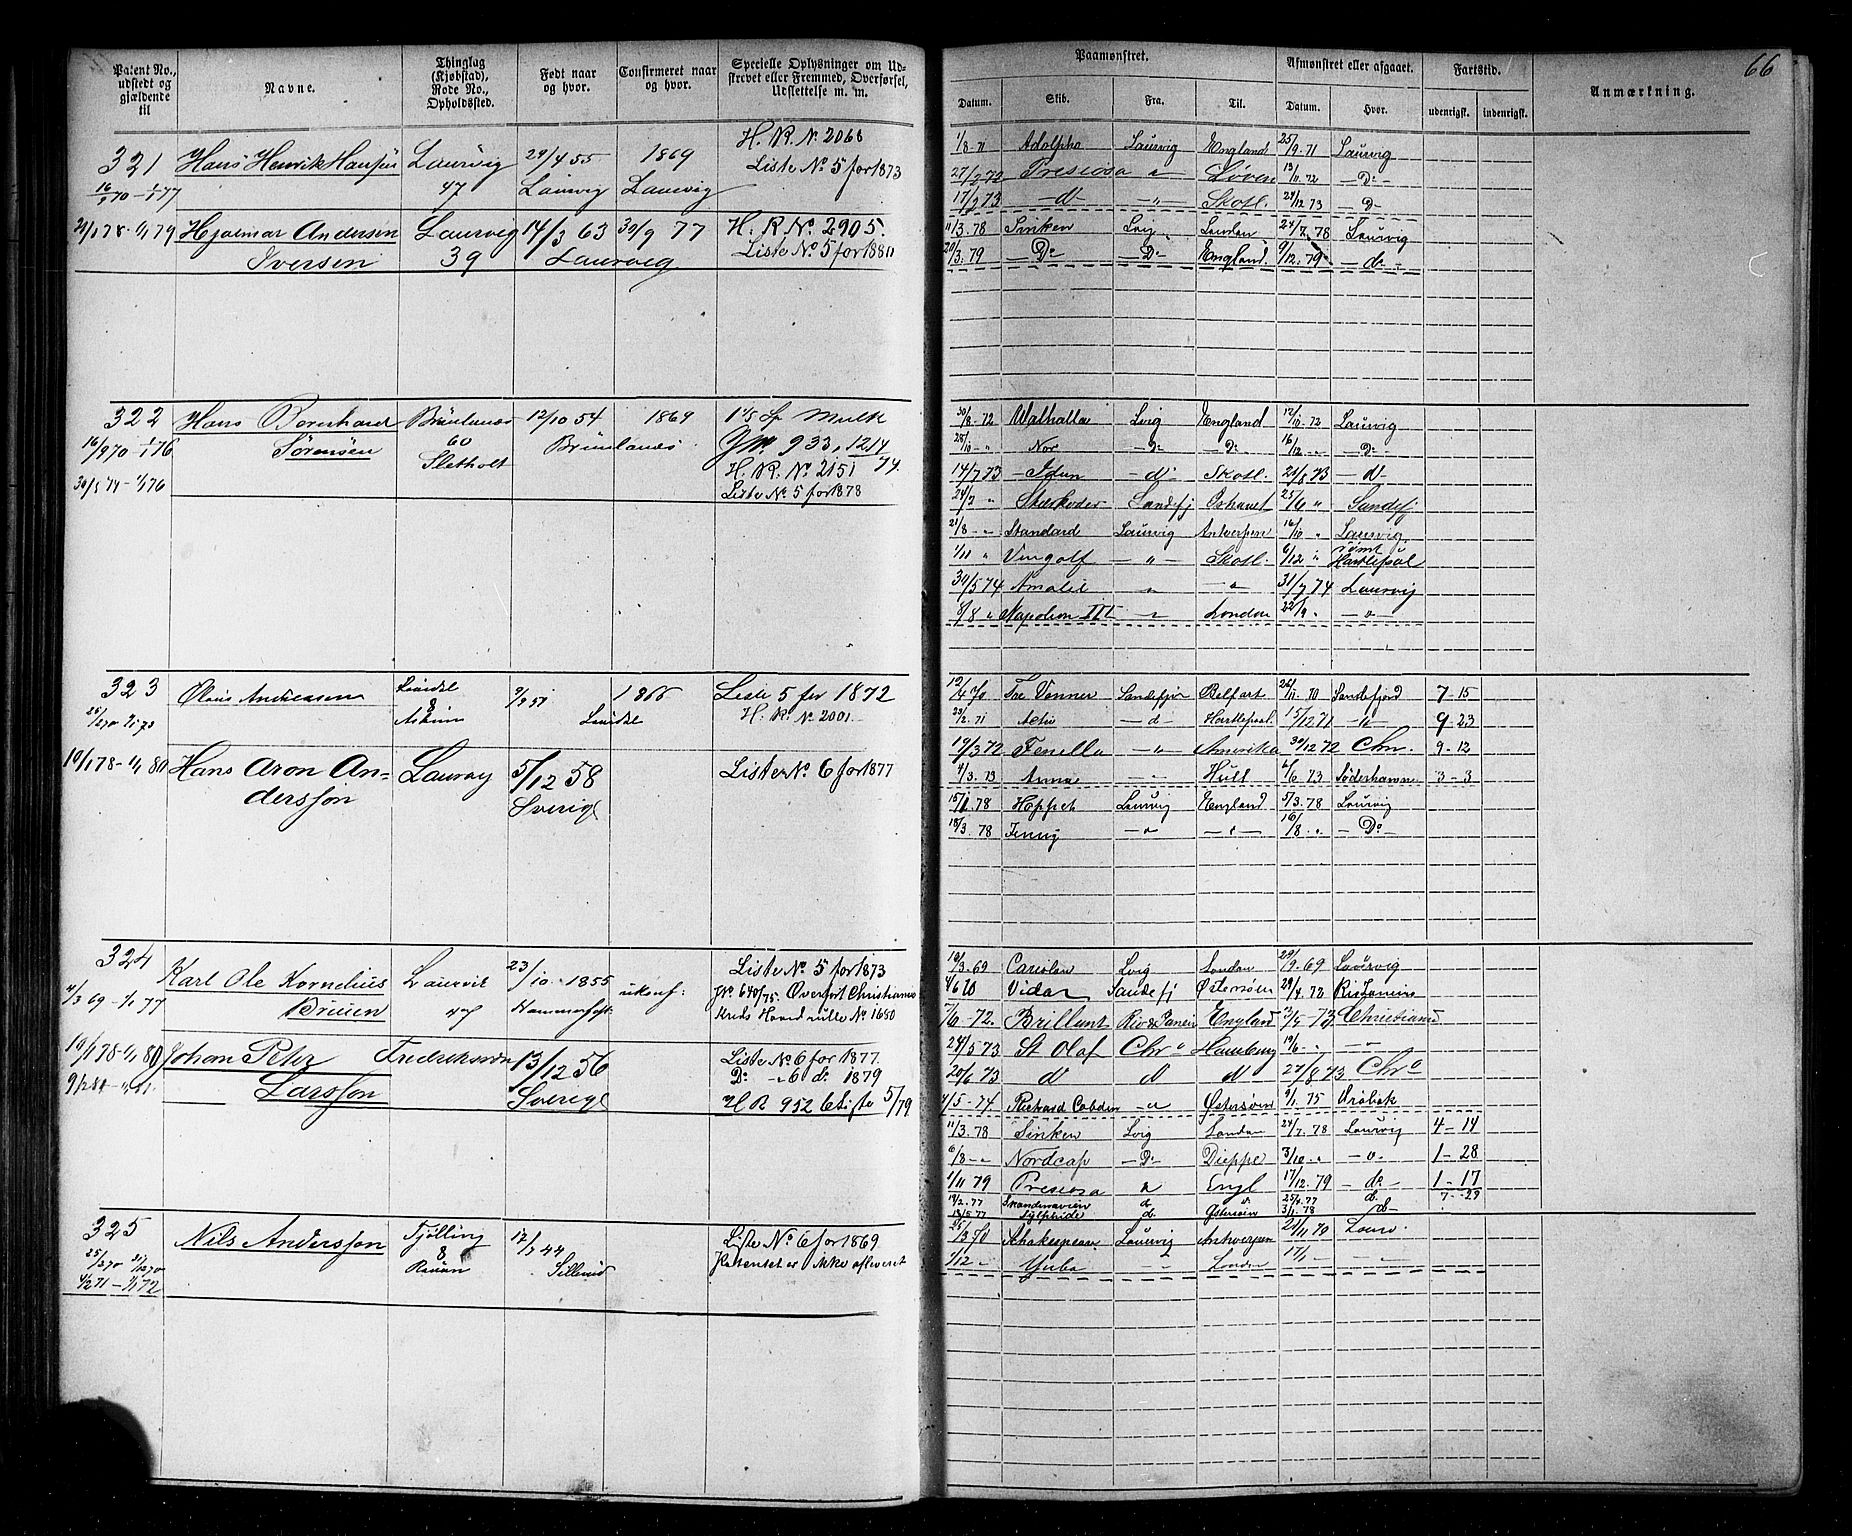 66
Patent No., udstedt og gjældende til
Navne.
Thinglag (Kjøbstad), Rode No., Opholdssted.
Født naar og hvor.
Confirmeret naar og hvor.
Specielle Oplysninger om Udskrevet eller Fremmed, Overførsel, Udslettelse m. m.
Paamønstret.
Datum. Skib. Fra. Til.
Afmønstret eller afgaaet.
Datum. Hvor.
Fartstid.
udenrigsk. indenrigsk.
Anmærkning.
321 Hans Henrik Hansen Laurvig 29/4 55 1869 H. R. N. 2068
16/9 70 – 1/1 77 47 Laurvig Laurvig Liste No 5 for 1873
Hjalmar Andersen Laurvig 14/3 63 30/9 77 H. R. No. 2905.
Iversen 39 Laurvig Liste No 5 for 1880
1/8 71 Adolpha Laurvig England 25/9 71 Laurvig
27/2 72 Presiosa 13/11 72 Do
17/2 73 d Skotl. 24/12 73 D
11/3. 78 Sirken Lvig London 24/7. 78 Laurvig
20/3. 79 Do Do England. 9/12. 79 do
322 Hans Bernhard Brunlanæs 12/10 54 1869
16/9 70 – 1/1 76 Sørensen 60 Brunlanæs 933, 1214/74.
30/5 74 – 1/1 76 Sletholt H. R. No 2151
Liste No 5 for 1878
30/8. 72 Walhalla Lvig England 12/10. 72 Laurvig
28/10 Nor Do Do 16/12 Do
14/7 73 Idun do Skotl. 21/8 73 d
24/2 Sandefj Ishavet 25/6 Sandefj
21/8 Standard Laurvig Antwerpen 16/10 Laurvig
1/11 Vingolf Skotl. 6/12 rømt Hartlepool
30/5 74 Amalie 31/7 74 Laurvig
8/8 Napoleon III London 22/9
323 Olaus Andreassen 8 2/9 51 1866 Liste 5 for 1872
H. R. No 2001.
10/1 78 – 1/1 80 Hans Aron An= Laurvig 5/12 58 Liste No 6 for 1877
dersson Sverige
12/4 70 Tre Venner Sandefjor Belfast 26/11. 70 Sandefjord 7-15
23/2. 71 Activ d Hartlepool. 15/12 71 9-23
19/3 72 Fenella Amerika 30/12 72 Chr. 9-12
4/3. 73 Anna Hull 6/6 73 Søderhamn 3-3
15/1. 78 Hoppet Laurvig England 5/3. 78 Laurvig
18/3. 78 Jenny 16/8 Do
324 Karl Ole Kornelius Laurvik 23/10. 1855 ukonf. Liste No. 5 for 1873
4/3 69 – 1/1 77 Bruun 47 Hammerfest No 640/75. Overført Christiania
Kreds Hovedrulle No 1680
10/1 78 – 1/1 80 Johan Peter Fredriksson 13/12 56 Liste No 6 for 1877.
Larsson Sverige Do 6 do 1879
H R 952 Liste 5/79
18/3. 69 Lvig London 29/9. 69 Laurvig
4/6 70 Vidar Sandefj Østersøen
7/6 – 72. Brillant Rio de Janeiro England Christiania
24/5 73 St Olaf Chra Hamburg 19/6
20/6 73 d d d 27/8 73 Chra
4/5 – 74 Richard Cobden Østersøen 9/1. 75 Drøbak
11/3. 78 Sirken Lvig London 24/7. 78 Laurvig 4-14
6/8 Nordcap Do Dieppe 3/10 1-28
1/11 79 Presiosa Engl 17/12. 79 do 1-17
14/2. 77 Skandinavien d. 25/4. 77 d. 7-29
13/5 77 Sylphide d. Østersøen 3/1. 78 d
325 Nils Andersson Tjølling 17/7 44 Liste No 6 for 1869
8 Patentet er ikke afleveret
Shakespeare Laurvig Antwerpen 21/11 70 Laurv.
1/12 London 17/1